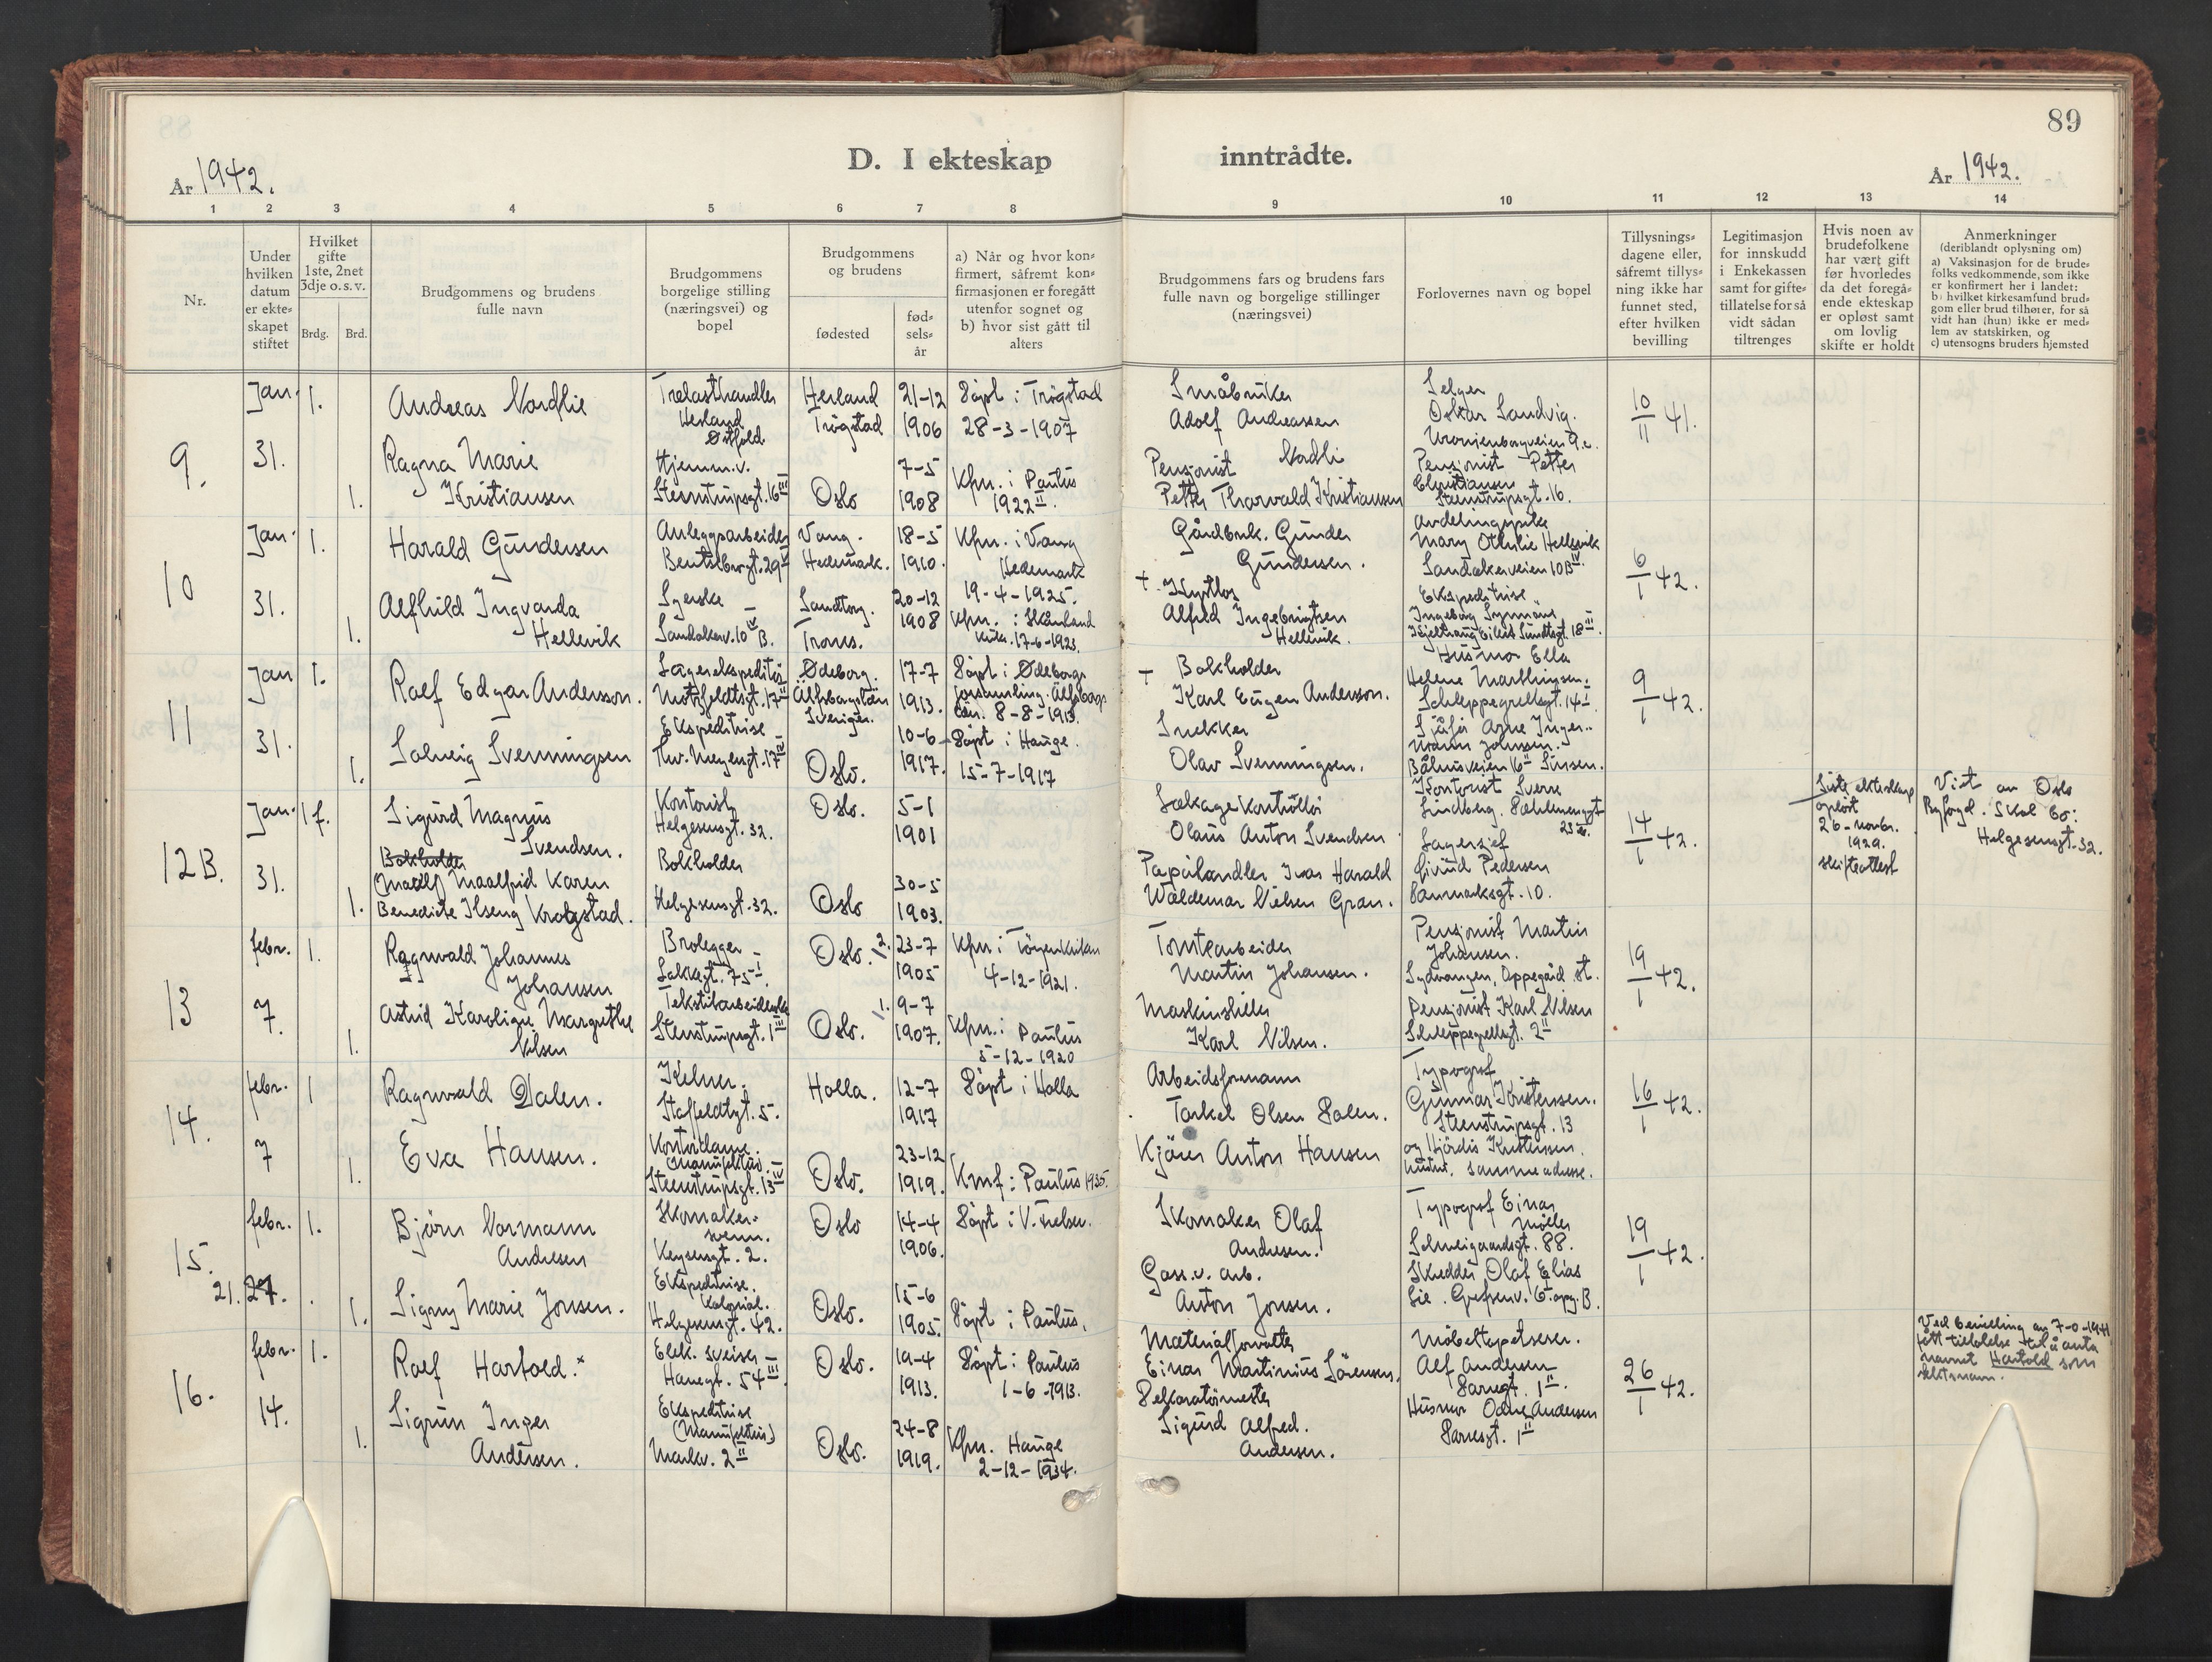 89
D. I ekteskap inntrådte.
År 1942.
År 1942.
1 2 3 4 5 6 7 8 9 10 11 12 13 14
Nr.
Under hvilken datum er ekteskapet stiftet
Hvilket gifte 1ste, 2net 3dje o. s. v.
Brdg. Brd.
Brudgommens og brudens fulle navn
Brudgommens borgelige stilling (næringsvei) og bopel
Brudgommens og brudens
fødested
fødsels-år
a) Når og hvor konfirmert, såfremt konfirmasjonen er foregått utenfor sognet og
b) hvor sist gått til alters
Brudgommens fars og brudens fars fulle navn og borgelige stillinger (næringsvei)
Forlovernes navn og bopel
Tillysningsdagene eller, såfremt tillysning ikke har funnet sted, efter hvilken bevilling
Legitimasjon for innskudd i Enkekassen samt for giftetillatelse for så vidt sådan tiltrenges
Hvis noen av brudefolkene har vært gift før hvorledes da det foregående ekteskap er opløst samt om lovlig skifte er holdt
Anmerkninger
(deriblandt oplysning om)
a) Vaksinasjon for de brudefolks vedkommende, som ikke er konfirmert her i landet:
b) hvilket kirkesamfund brudgom eller brud tilhører, for så vidt han (hun) ikke er medlem av statskirken, og
c) utensogns bruders hjemsted
9.
Jan. 31.
1.
Andreas Nordlie
Trelasthandler
Herland
Østfold
Herland
Trøgstad
21-12
1906
Döpt i Trögstad
28-3-1907
Småbruker
Adolf Andreassen
Nordli
Selger
Oskar Sandvig.
Uranienborgveien 9.c.
10/11 41.
1.
Ragna Marie
Kristiansen
Hjemm.v.
Steenstrupsgt. 16 III
Oslo
7-5
1908
Kfm. i Paulus
1922 II.
Pensjonist
Petter Thorvald Kristiansen
Pensjonist Petter
Christiansen
Steenstrupsgt. 16.
10
Jan. 31.
1.
Harald Gundersen
Anleggsarbeider
Bentsebrgt. 29 II
Vang.
Hedemark.
18-5
1910.
Kfm. i Vang
Hedemark
19-4-1925.
Gårdbruk. Gunder
Gundersen.
Mary Othilie Hellevik
Sandakerveien 10 B IV.
6/1 42.
1.
Alfhild Ingvarda
Hellevik
Syerske
Sandakerv. 10 IV B.
Sandtorg.
Troms.
20-12
1908
Kfm. i Skånland
kirke. 17-6-1923.
+ Kyrtlos
Alfred Ingebrigtsen
Hellevik.
Ekspeditrise
Ingeborg
Eilert Sundtsgt. 18 III.
11
Jan 31.
1.
Ralf Edgar Andersson.
Lagerekspeditör
Motzfeldtsgt. 17 II
Ödeborg.
Älfsborgslän
Sverige.
17-7
1913.
Döpt i Ödeborgs
forsamling. Älfsborgs
län. 8-8-1913.
+ Bokholder
Karl Eugen Andersson.
Husmor Ella
Helene Marthinsen.
Schleppegrellsgt. 14 I
9/1 42.
1.
Solveig Svenningsen
Ekspeditrise
Thv. Meyersgt. 17 IV
Oslo.
10-6-
1917.
Döpt i Hauge.
15-7-1917
Snekker
Olav Svenningsen.
Sjåför Arne Inger-
mann Johnsen.
Bålerudveien 16 II Sinsen.
12B.
Jan. 31.
1 f.
Sigurd Magnus
Svendsen.
Kontorist
Helgesensgt. 32.
Oslo.
5-1
1901
Lekkagekontrollör
Olaus Anton Svendsen
Kontorist Sverre
Lindberg. Dæhlenengt
23 III.
14/1 42.
Siste ekteskap
oplöst
26-novbr.
1929.
skifteattest
Viet av Oslo
Byfogd. Skal bo:
Helgesensgt. 32.
1.
Bokholder
Maalfrid Karen
Benedicte Ilseng Krogstad.
Bokholder
Helgesensgt. 32.
Oslo
30-5
1903.
Papirhandler Ivar Harald
Waldemar Nielsen Gran.
Lagersjef
Eivind Pedersen
Danmarksgt. 10.
13
febr. 7.
1.
Ragnvald Johannes
Johansen
Brolegger
Lakkegt. 75 I.
Oslo.
2.
23-7
1905
Kfm. i Töyenkirken
4-12-1921.
Tomtearbeider
Martin Johansen.
Pensjonist Martin
Johansen.
Sydvangen, Oppegård st.
19/1 42.
1.
Astrid Karoline Margrethe
Nilsen
Tekstilarbeiderske
Steenstrupsgt. 1 III
Oslo.
1.
9-7
1907.
Kfm. i Paulus
5-12-1920
Maskinstiller
Karl Nilsen.
Pensjonist Karl Nilsen
Schleppegrellsgt. 2 II
14.
febr. 7
1
Ragnvald Dalen.
Kelner.
Staffeldtsgt. 5.
Holla.
12-7
1917
Döpt i Holla
Arbeidsformann
Torkel Olsen Dalen.
Typograf
Gunnar Kristensen.
Steenstrupsgt. 13
16/1 42.
1.
Eva Hansen.
Kontordame.
Manufaktur.
Steenstrupsgt. 13 IV
Oslo.
23-12
1919.
Knf: Paulus 1935.
Kjöres Anton Hansen
og Hjördis Kristensen.
hustru. samme adresse.
15.
febr.
21. 27.
1.
Björn Normann
Andresen
Skomaker-
svenn.
Keysersgt. 2.
Oslo
14-4
1906.
Döpt i V. Frelser.
Skomaker Olaf
Andresen.
Typograf Einar
Möller
Schweigaardsgt. 88.
19/1 42.
1.
Signy Marie Jonsen.
Ekspeditrise.
Kolonial.
Helgesensgt. 42.
Oslo.
15-6
1905.
Döpt i Paulus.
Gass.v. arb.
Anton Jonsen.
Skredder Olaf Elias
Lie. Grefsenv. 6 I opg. B.
16.
febr. 14.
1.
Ralf Hartold.×
Elek. sveiser
Hanegt. 54 III.
Oslo.
19-4
1913.
Döpt i Paulus
1-6-1913.
Materialforvalter
Einar Martinius Sörensen.
Möbeltapetserer.
Alf Andersen
Darregt. 1 II.
26/1 42.
Ved bevilling av 7-0-1941
fått tillatelse til å anta
navnet Hartold som
slektsnavn.
1.
Sigrun Inger
Andersen.
Ekspeditrise
(Manufaktur)
Markv. 2 II
Oslo.
24-8
1919.
Kfm. Hauge
2-12-1934.
Dekoratörmester
Sigurd Alfred.
Andersen.
Husmor Odny Andersen
Darresgt. 1 II